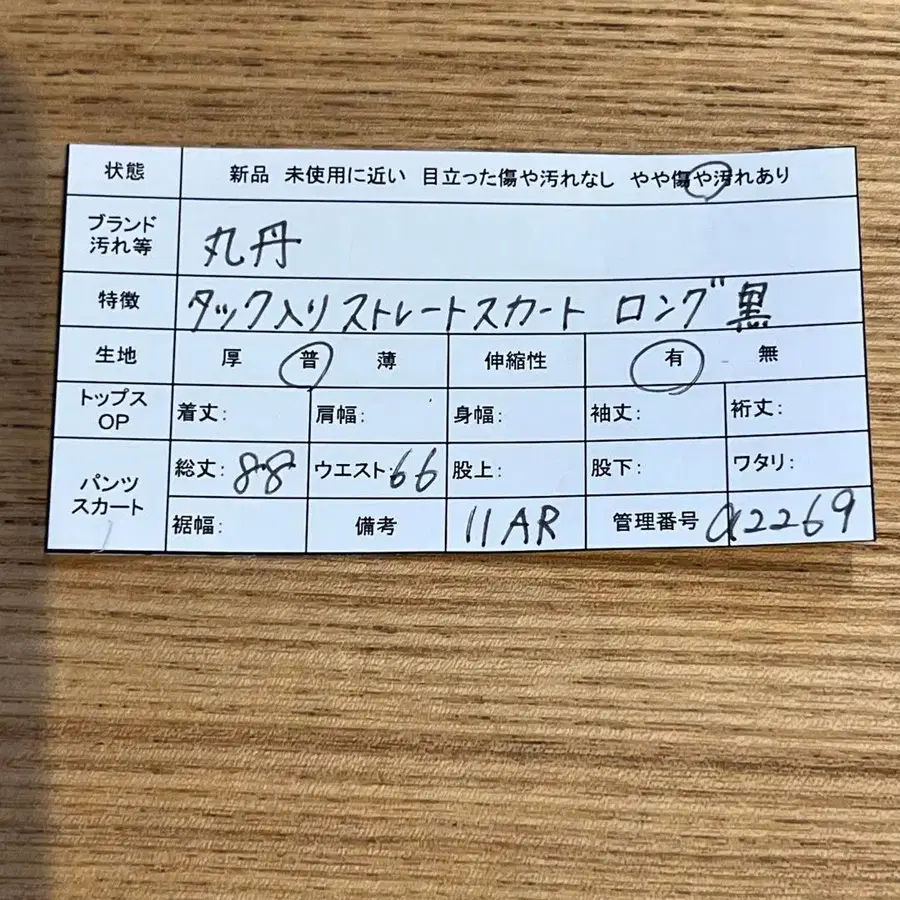 状態 新品 未使用に近い 目立った傷や汚れなし やや傷や汚れあり
ブランド 丸丹
汚れ等
特徴 タック入りストレートスカート ロング 黒
生地 厚 普 薄 伸縮性 有 無
トップス 着丈: 肩幅: 身幅: 袖丈: 裄丈:
OP
パンツ 総丈:88 ウエスト:66 股上: 股下: ワタリ:
スカート 裾幅: 備考 11AR 管理番号 a2269